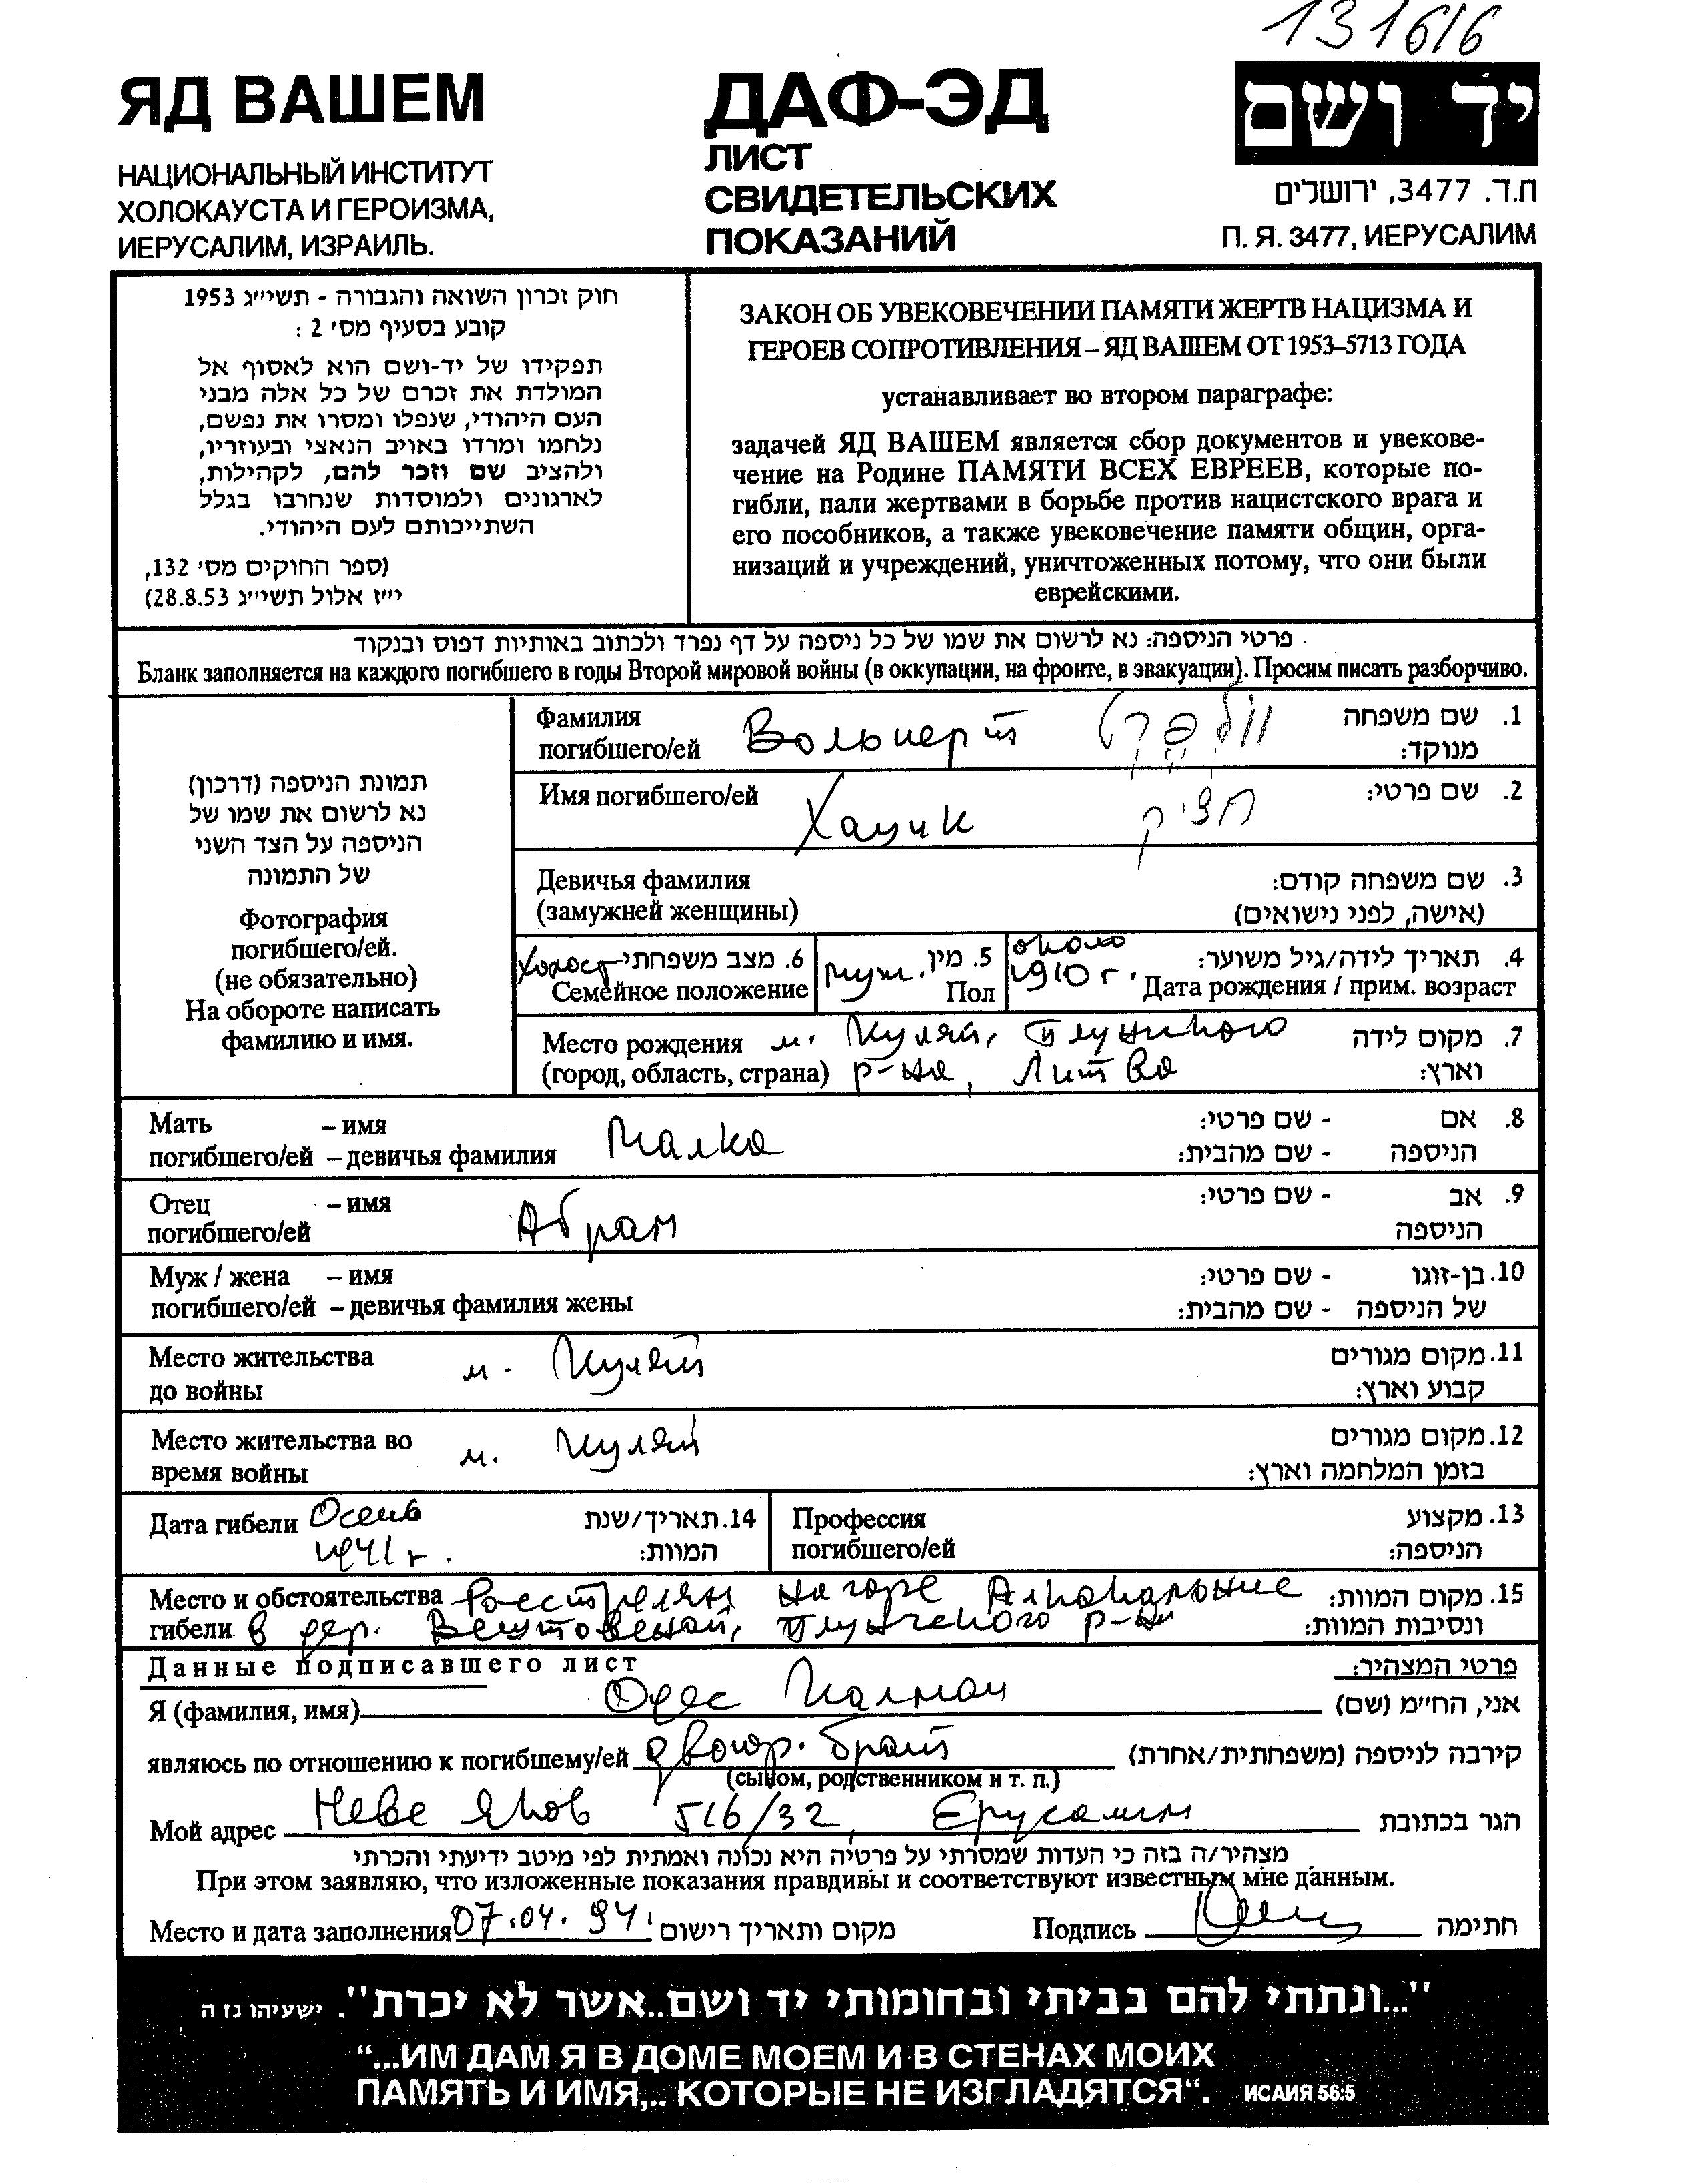 131616
ЯД ВАШЕМ
НАЦИОНАЛЬНЫЙ ИНСТИТУТ
ХОЛОКАУСТА И ГЕРОИЗМА,
ИЕРУСАЛИМ, ИЗРАИЛЬ.
ДАФ-ЭД
ЛИСТ
СВИДЕТЕЛЬСКИХ
ПОКАЗАНИЙ
יד ושם
ת.ד. 3477, ירושלים
П. Я. 3477, ИЕРУСАЛИМ
חוק זכרון השואה והגבורה - תשי״ג 1953
קובע בסעיף מס׳ 2 :
תפקידו של יד-ושם הוא לאסוף אל
המולדת את זכרם של כל אלה מבני
העם היהודי, שנפלו ומסרו את נפשם,
נלחמו ומרדו באויב הנאצי ובעוזריו,
ולהציב שם וזכר להם, לקהילות,
לארגונים ולמוסדות שנחרבו בגלל
השתייכותם לעם היהודי.
(ספר החוקים מס׳ 132,
י״ז אלול תשי״ג 28.8.53)
ЗАКОН ОБ УВЕКОВЕЧЕНИИ ПАМЯТИ ЖЕРТВ НАЦИЗМА И
ГЕРОЕВ СОПРОТИВЛЕНИЯ – ЯД ВАШЕМ ОТ 1953–5713 ГОДА
устанавливает во втором параграфе:
задачей ЯД ВАШЕМ является сбор документов и увекове-
чение на Родине ПАМЯТИ ВСЕХ ЕВРЕЕВ, которые по-
гибли, пали жертвами в борьбе против нацистского врага и
его пособников, а также увековечение памяти общин, орга-
низаций и учреждений, уничтоженных потому, что они были
еврейскими.
פרטי הניספה: נא לרשום את שמו של כל ניספה על דף נפרד ולכתוב באותיות דפוס ובנקוד
Бланк заполняется на каждого погибшего в годы Второй мировой войны (в оккупации, на фронте, в эвакуации). Просим писать разборчиво.
תמונת הניספה (דרכון)
נא לרשום את שמו של
הניספה על הצד השני
של התמונה
Фотография
погибшего/ей.
(не обязательно)
На обороте написать
фамилию и имя.
Фамилия Вольперт וולפרט 1. שם משפחה
погибшего/ей מנוקד:
Имя погибшего/ей Хацик חציק 2. שם פרטי:
Девичья фамилия 3. שם משפחה קודם:
(замужней женщины) (אישה, לפני נישואים)
Холост 6. מצב משפחתי муж. 5. מין около 4. תאריך לידה/גיל משוער:
Семейное положение Пол 1910 г. Дата рождения / прим. возраст
Место рождения м. Куляй, Плунгского 7. מקום לידה
(город, область, страна) р-на, Литва וארץ:
Мать – имя Малка - שם פרטי: 8. אם
погибшего/ей – девичья фамилия - שם מהבית: הניספה
Отец – имя Абрам - שם פרטי: 9. אב
погибшего/ей הניספה
Муж / жена – имя - שם פרטי: 10. בן-זוגו
погибшего/ей – девичья фамилия жены - שם מהבית: של הניספה
Место жительства м. Куляй 11. מקום מגורים
до войны קבוע וארץ:
Место жительства во м. Куляй 12. מקום מגורים
время войны בזמן המלחמה וארץ:
Дата гибели Осень 14. תאריך/שנת Профессия 13. מקצוע
1941 г. המוות: погибшего/ей הניספה:
Место и обстоятельства Расстрелян на горе 15. מקום המוות:
гибели в дер. Плунгского р-на ונסיבות המוות:
Данные подписавшего лист פרטי המצהיר:
Я (фамилия, имя) Одес Калман אני, הח״מ (שם)
являюсь по отношению к погибшему/ей двоюр. брат קירבה לניספה (משפחתית/אחרת)
(сыном, родственником и т. п.)
Мой адрес Неве Яков 516/32, Ерусалим הגר בכתובת
מצהיר/ה בזה כי העדות שמסרתי על פרטיה היא נכונה ואמתית לפי מיטב ידיעתי והכרתי
При этом заявляю, что изложенные показания правдивы и соответствуют известным мне данным.
Место и дата заполнения 07.04.94. מקום ותאריך רישום Подпись חתימה
"...ונתתי להם בביתי ובחומותי יד ושם..אשר לא יכרת". ישעיהו נו ה
“...ИМ ДАМ Я В ДОМЕ МОЕМ И В СТЕНАХ МОИХ
ПАМЯТЬ И ИМЯ,.. КОТОРЫЕ НЕ ИЗГЛАДЯТСЯ“. ИСАИЯ 56:5